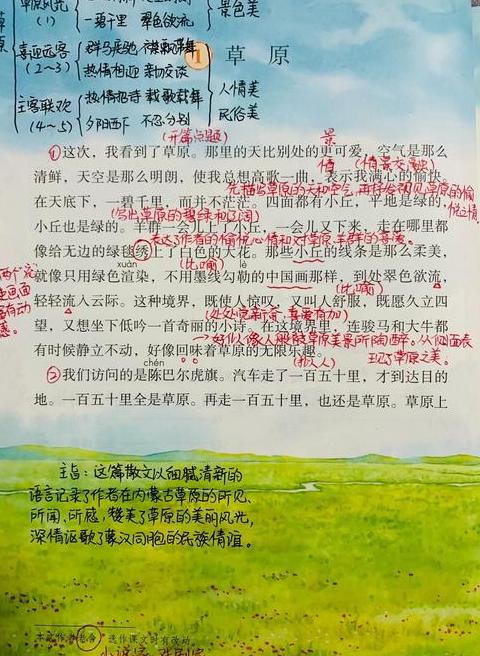 草原
草原风光
(1)
一碧千里 翠色欲流
景色美
喜迎远客
(2~3)
群马疾驰 襟飘带舞
热情相迎 亲切交谈
主客联欢
(4~5)
热情招待 载歌载舞
夕阳西下 不忍分别
人情美
民俗美
1 草原
(开篇点题)
景
①这次，我看到了草原。那里的天比别处的更可爱，空气是那么
情 (情景交融)
清鲜，天空是那么明朗，使我总想高歌一曲，表示我满心的愉快。
先描写草原的天和空气，再抒发初见草原的愉悦之情
在天底下，一碧千里，而并不茫茫。四面都有小丘，平地是绿的，
(写出草原的碧绿和辽阔)
小丘也是绿的。羊群一会儿上了小丘，一会儿又下来，走在哪里都
表达了作者的愉悦心情和对草原、羊群的喜爱。
像给无边的绿毯绣上了白色的大花。那些小丘的线条是那么柔美，
xuàn
(比喻)
lè
就像只用绿色渲染，不用墨线勾勒的中国画那样，到处翠色欲流，
(比喻)
轻轻流入云际。这种境界，既使人惊叹，又叫人舒服，既愿久立四
望，又想坐下低吟一首奇丽的小诗。在这境界里，连骏马和大牛都
有时候静立不动，好像回味着草原的无限乐趣。
(拟人)
chén
②我们访问的是陈巴尔虎旗。汽车走了一百五十里，才到达目的
地。一百五十里全是草原。再走一百五十里，也还是草原。草原上
主旨：这篇散文以细腻清新的
语言记录了作者在内蒙古草原的所见、
所闻、所感，赞美了草原的美丽风光，
深情讴歌了蒙汉同胞的民族情谊。
本文作者老舍，选作课文时有改动。
小说家、戏剧家